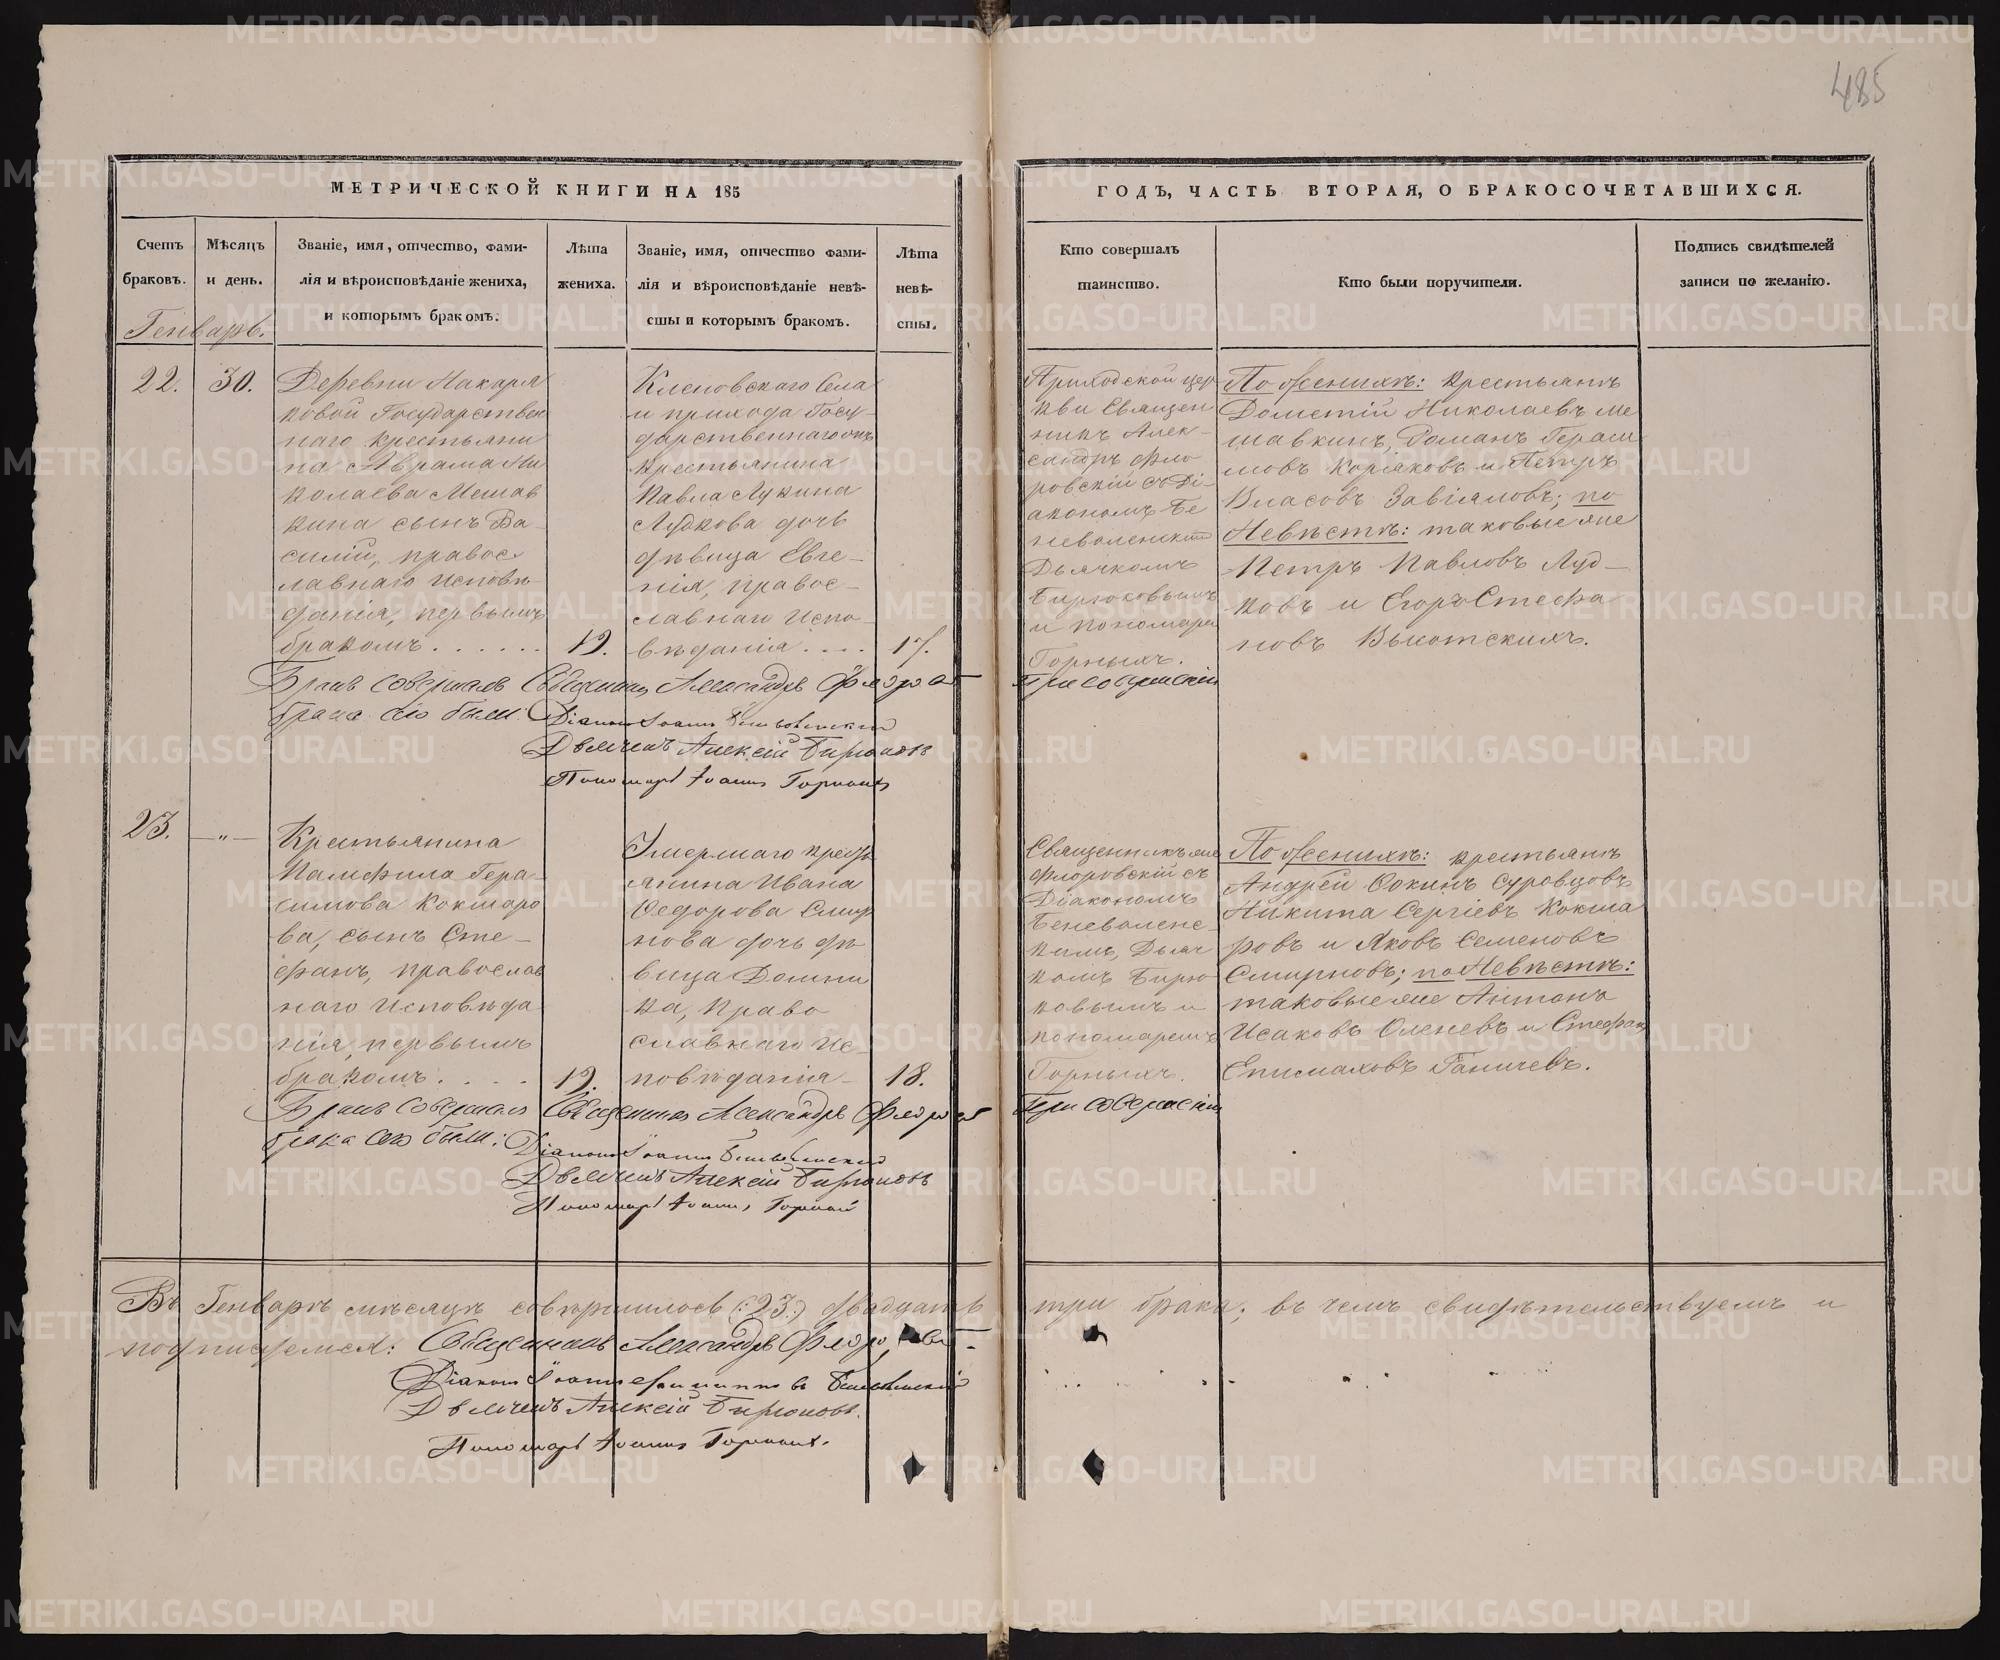 485
МЕТРИЧЕСКОЙ КНИГИ НА 185
ГОДЪ, ЧАСТЬ ВТОРАЯ, О БРАКОСОЧЕТАВШИХСЯ.
Счетъ
браковъ.
Мѣсяцъ
и день.
Званіе, имя, отчество, фами-
лія и вѣроисповѣданіе жениха,
и которымъ бракомъ.
Лѣта
жениха.
Званіе, имя, отчество фами-
лія и вѣроисповѣданіе невѣ-
сты и которымъ бракомъ.
Лѣта
невѣ-
сты.
Кто совершалъ
таинство.
Кто были поручители.
Подпись свидѣтелей
записи по желанію.
Генварь.
22.
30.
Деревни Макаря
ковой Государствен
наго крестьяни
на Аврама Ни
колаева Мешав
кина сынъ Ва-
силій, правос-
лавнаго исповѣ
данія, первымъ
бракомъ . . . . . .
19.
Кленовскаго Села
и прихода Госу-
дарственнаго
крестьянина
Павла Лукина
Лудкова дочь
дѣвица Евге-
нія, правос-
лавнаго испо-
вѣданія . . . .
17.
Приходской цер-
кви Священ
никъ Алек-
сандръ Фло
ровскій съ Ді-
акономъ Бе
неволенским
Дьячкомъ
Бирюковымъ
и пономаре
Горныхъ.
По женихѣ: крестьянъ
Дометій Николаевъ Ме
шавкинъ, Романъ Гераси
мовъ Коряковъ и Петръ
Власовъ Завьяловъ; по
Невѣстѣ: таковые же
Петръ Павловъ Луд-
ковъ и Егоръ Стефа
новъ Вьютскихъ.
Бракъ совершалъ Священникъ Александръ Флоровск При совершеніи
брака сего были: Діаконъ Іоаннъ Беневоленскій
Дьячекъ Алексій Бирюковъ
Пономарь Іоаннъ Горныхъ
23.
— „ —
Крестьянина
Памфила Гера-
симова Кокшаро
ва, сынъ Сте-
фанъ, православ
наго исповѣда
нія, первымъ
бракомъ. . . . .
19.
Умершаго кресть
янина Ивана
Федорова Смир
нова дочь дѣ
вица Домни
ка, право
славнаго ис-
повѣданія -
18.
Священникъ же
Флоровскій съ
Діакономъ
Беневоленс-
кимъ, Дьяч
комъ Бирю
ковымъ и
пономаремъ
Горныхъ.
По женихѣ: крестьянъ
Андрей Фокинъ Суровцовъ
Никита Сергіевъ Кокша
ровъ и Яковъ Семеновъ
Смирновъ; по Невѣстѣ:
таковые же Антонъ
Исаковъ Оленевъ и Стефан
Епимаховъ Ганичевъ.
Бракъ совершалъ Священникъ Александръ Флоровск При совершеніи
брака сего были: Діаконъ Іоаннъ Беневоленскій
Дьячекъ Алексій Бирюковъ
Пономарь Іоаннъ Горный
Въ Генварѣ мѣсяцѣ совершилось (:23:) двадцать три брака; въ чемъ свидѣтельствуемъ и
подписуемся: Священникъ Александръ Флоровск.
Діаконъ Іоаннъ Беневоленскій
Дьячекъ Алексій Бирюковъ.
Пономарь Іоаннъ Горныхъ.
METRIKI.GASO-URAL.RU